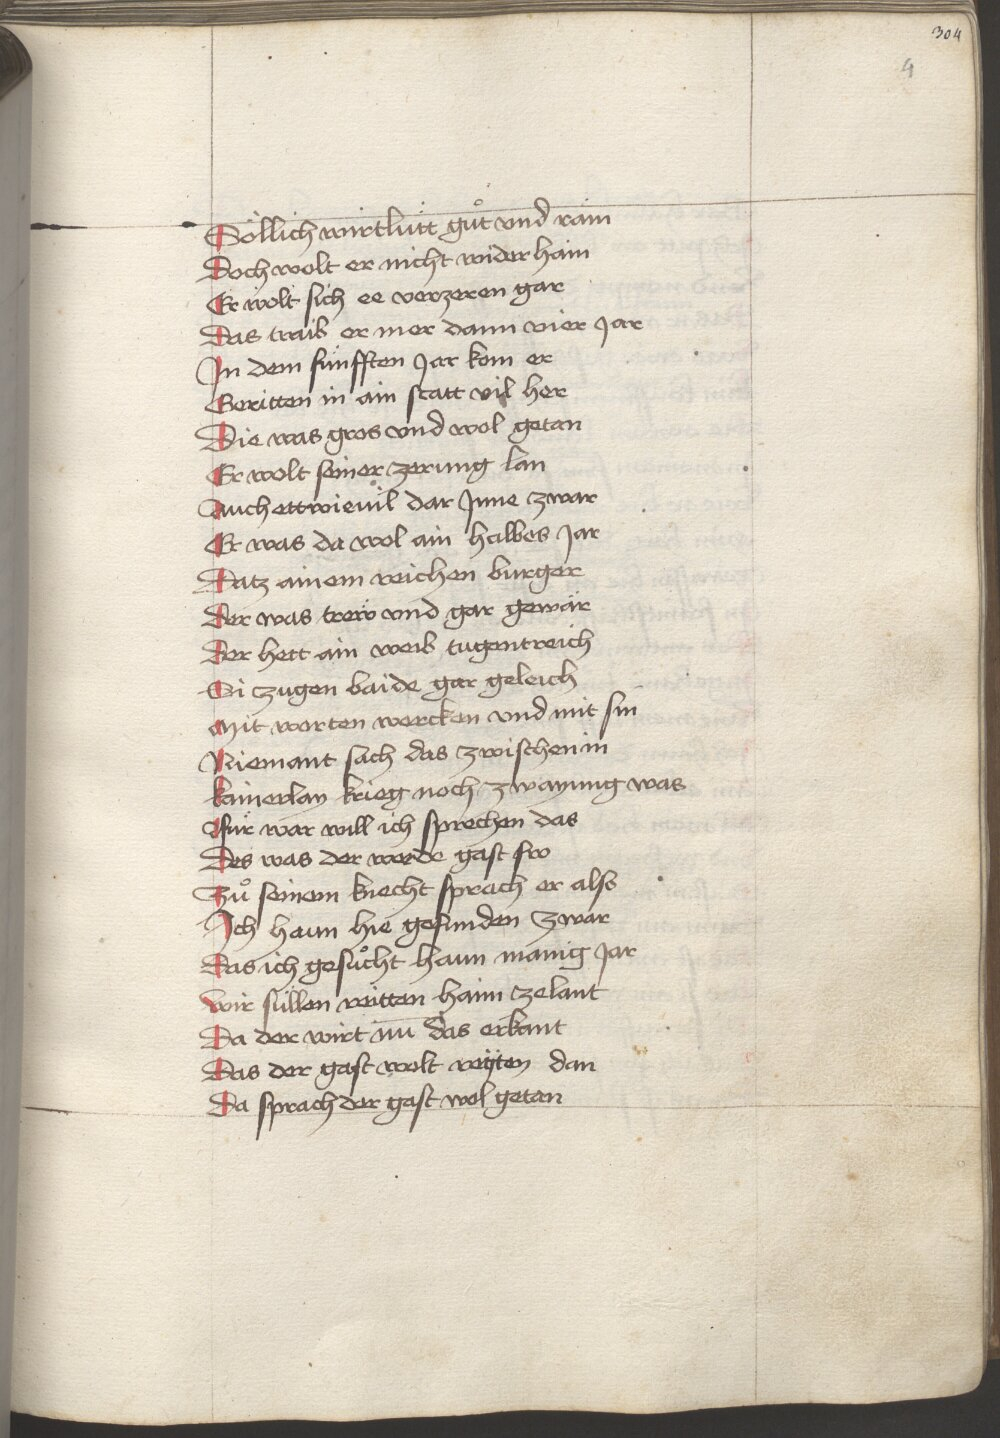 304
4
Söllich wirtlütt guͦt vnd rain
Doch wolt er nicht wider hain
Er wolt sich ee verzeren gar
Das traib er mer dann vier Jar
In dem fünfften Jar kom er
Geritten in ain statt vil her
Die was gros vnd wol getan
Er wolt seiner zerung lan
Auch ettwieuil dar Inne zwar
Er was da wol ain halbes Jar
Datz ainem reichen burger
Der was trew vnd gar gewär
Der hett ain weib tugentreich
Si zugen baide gar geleich
Mit worten wercken vnd mit sin
Niemant sach das zwischen in
kainerlay krieg noch zwayung was
für war will ich sprechen das
Des was der werde gast fro
Zuͦ seinem knecht sprach er also
Ich haun hie gefunden zwar
Das ich gesuͦcht haun manig Jar
wir süllen reitten haim zelant
Da der wirt nu das erkant
Das der gast wolt reyten dan
Da sprach der gast wol getan